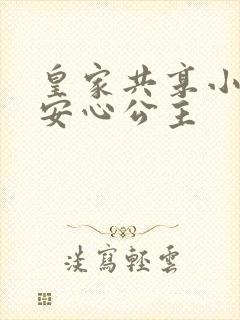 皇家共享小
安心公主
淡寫輕雲